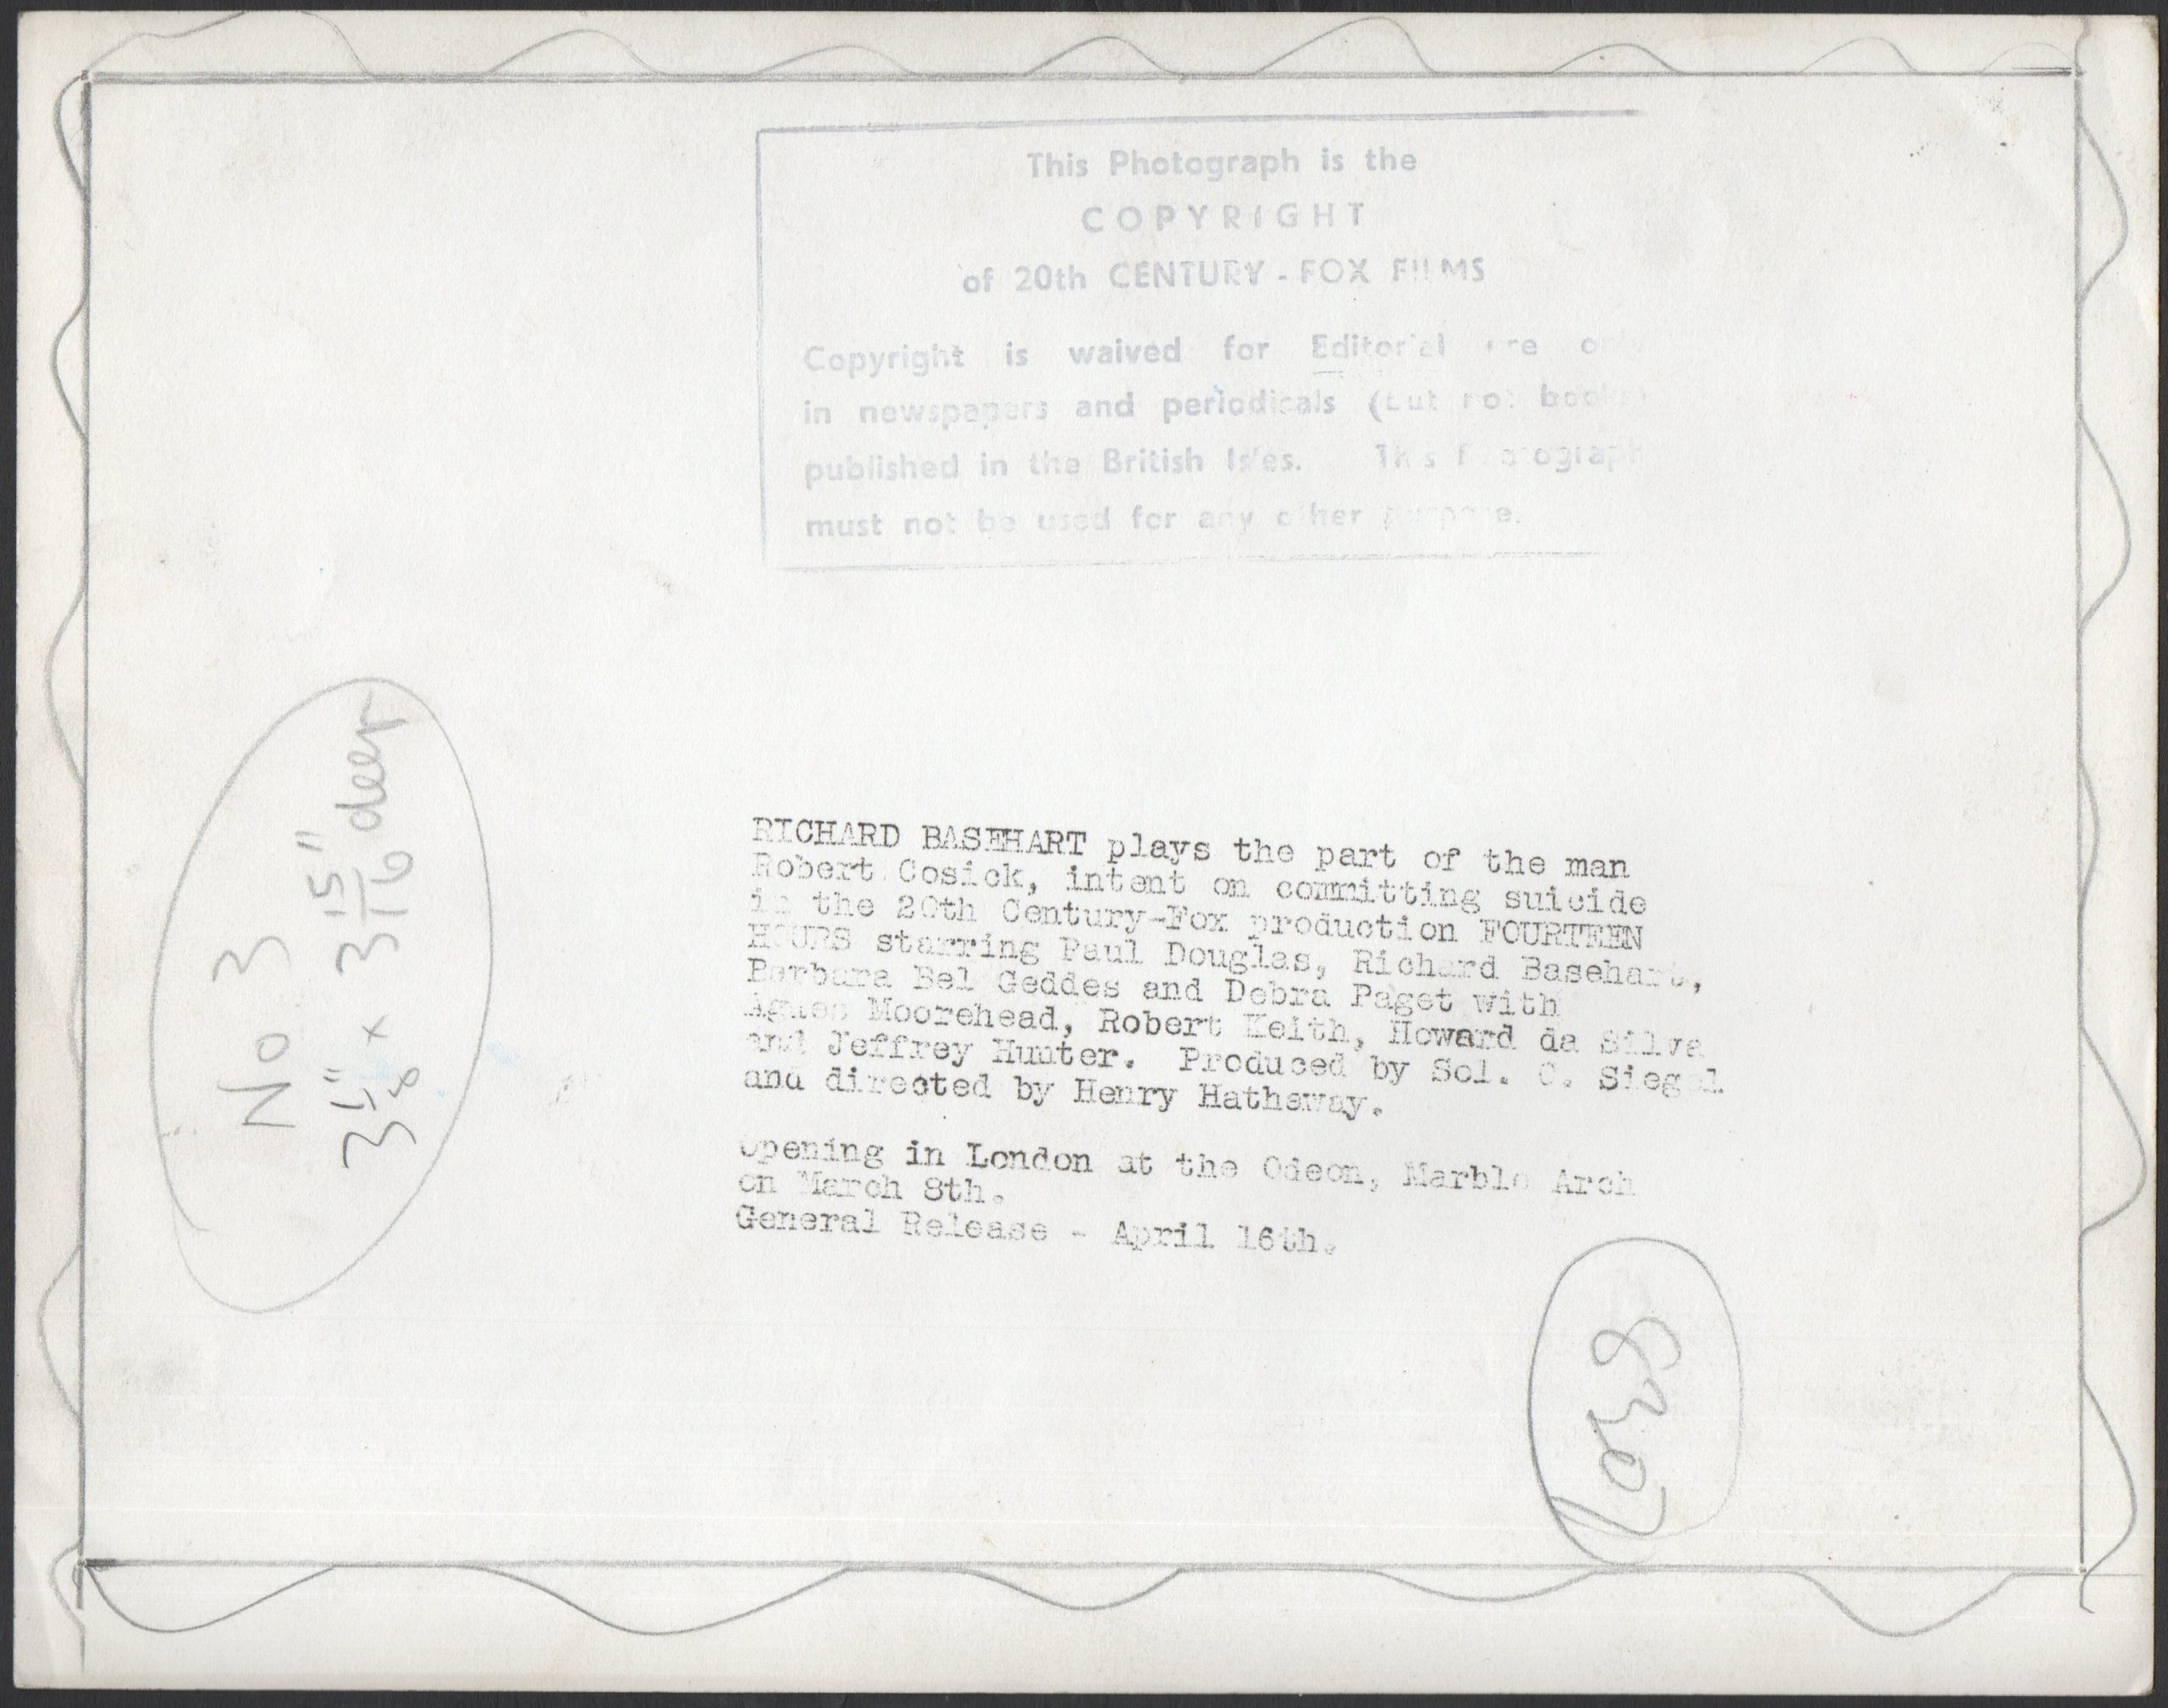 This Photograph is the
COPYRIGHT
of 20th CENTURY - FOX FILMS
Copyright is waived for Editorial
in newspapers and periodicals (but not books)
published in the British Isles. This Photograph
must not be used for any other purpose.
No 3
3 × 3 15/16" deep
RICHARD BASEHART plays the part of the man
Robert Cosick, intent on committing suicide
in the 20th Century-Fox production FOURTEEN
HOURS starring Paul Douglas, Richard Basehart,
Barbara Bel Geddes and Debra Paget with
Agnes Moorehead, Robert Keith, Howard da Silva
and Jeffrey Hunter. Produced by Sol. C. Siegel
and directed by Henry Hathaway.
Opening in London at the Odeon, Marble Arch
on March 8th.
General Release - April 16th.